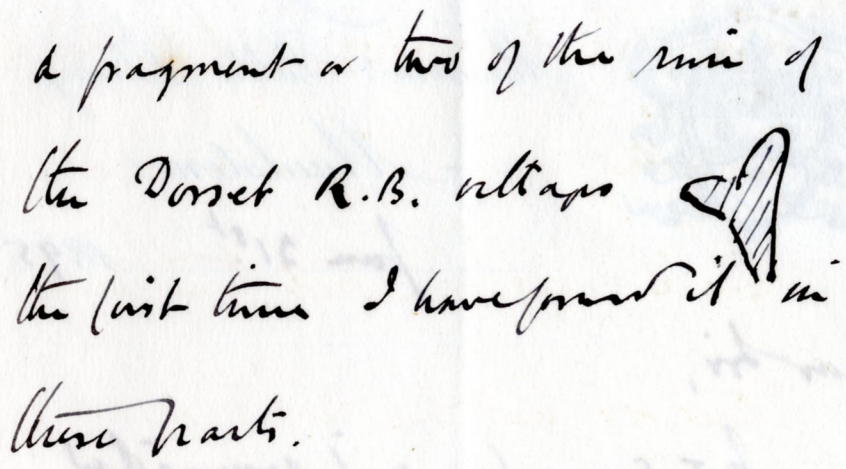 a fragment or two of the rim of
the Dorset R.B.
the first time I have found it in
these parts.